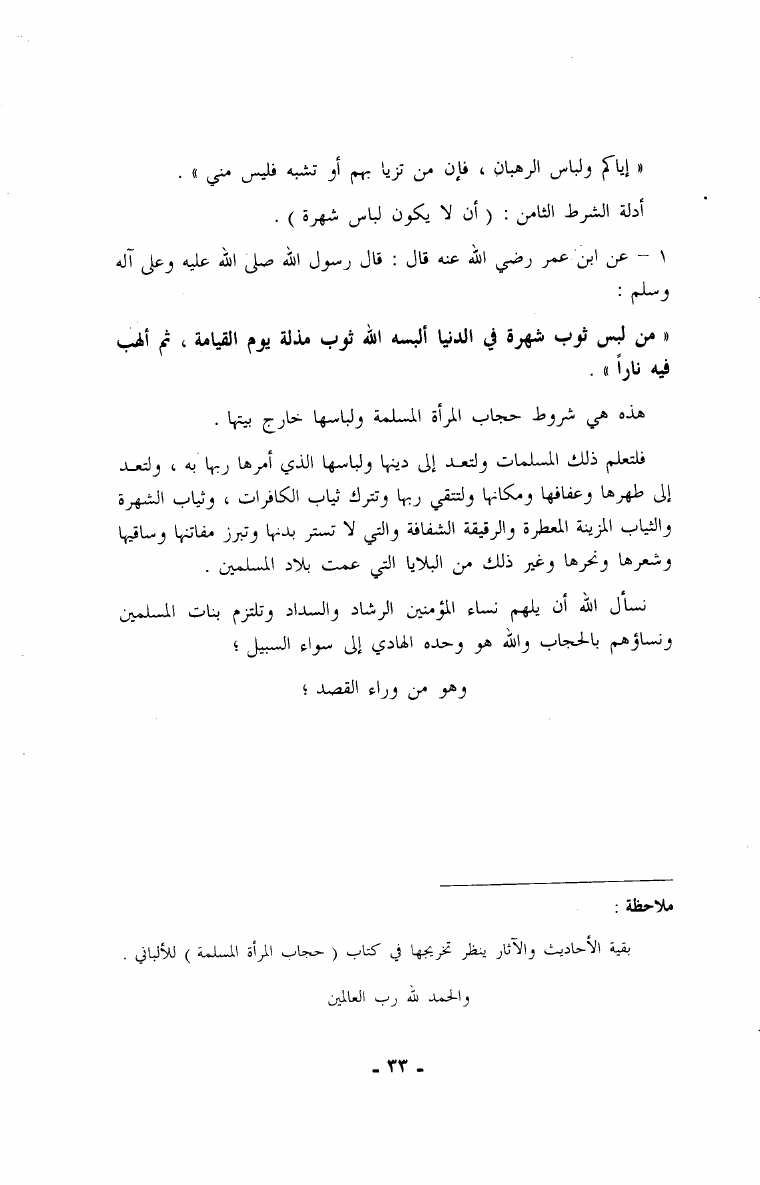 « إياكم ولباس الرهبان ، فإن من تزيا بهم أو تشبه فليس مني » .
أدلة الشرط الثامن : ( أن لا يكون لباس شهرة ) .
١ – عن ابن عمر رضي الله عنه قال : قال رسول الله صلى الله عليه وعلى آله
وسلم :
« من لبس ثوب شهرة في الدنيا ألبسه الله ثوب مذلة يوم القيامة ، ثم ألهب
فيه ناراً » .
هذه هي شروط حجاب المرأة المسلمة ولباسها خارج بيتها .
فلتعلم ذلك المسلمات ولتعد إلى دينها ولباسها الذي أمرها ربها به ، ولتعد
إلى طهرها وعفافها ومكانها ولتتقي ربها وتترك ثياب الكافرات ، وثياب الشهرة
والثياب المزينة المعطرة والرقيقة الشفافة والتي لا تستر بدنها وتبرز مفاتنها وساقيها
وشعرها ونحرها وغير ذلك من البلايا التي عمت بلاد المسلمين .
نسأل الله أن يلهم نساء المؤمنين الرشاد والسداد وتلتزم بنات المسلمين
ونساؤهم بالحجاب والله هو وحده الهادي إلى سواء السبيل ؛
وهو من وراء القصد ؛
ملاحظة :
بقية الأحاديث والآثار ينظر تخريجها في كتاب ( حجاب المرأة المسلمة ) للألباني .
والحمد لله رب العالمين
- ٣٣ -